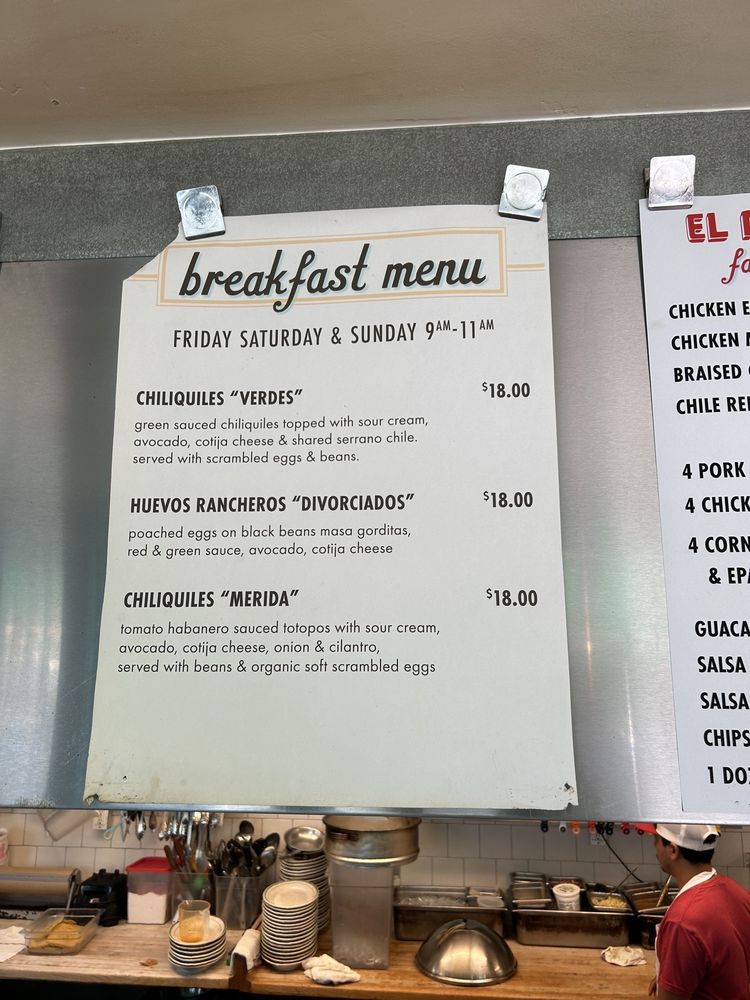 breakfast menu
FRIDAY SATURDAY & SUNDAY 9AM-11AM
CHILIQUILES "VERDES" $18.00
green sauced chiliquiles topped with sour cream,
avocado, cotija cheese & shared serrano chile.
served with scrambled eggs & beans.
HUEVOS RANCHEROS "DIVORCIADOS" $18.00
poached eggs on black beans masa gorditas,
red & green sauce, avocado, cotija cheese
CHILIQUILES "MERIDA" $18.00
tomato habanero sauced totopos with sour cream,
avocado, cotija cheese, onion & cilantro,
served with beans & organic soft scrambled eggs
EL
CHICKEN
CHICKEN
BRAISED
CHILE
4 PORK
4
4
&
SALSA
SALSA
CHIPS
1